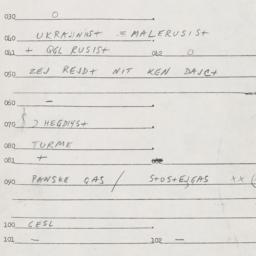 030 0
040 UKRAJINIST = MALERUSIST
041 + QGL RUSIST 042 0
050 ZEJ REJDT NIT KEN DAJCT
060 -
070 ) HEGDIYST
080 TURME
081 +
090 PANSKE GAS / STOSTEJGAS XX (
100 CESL
101 - 102 -